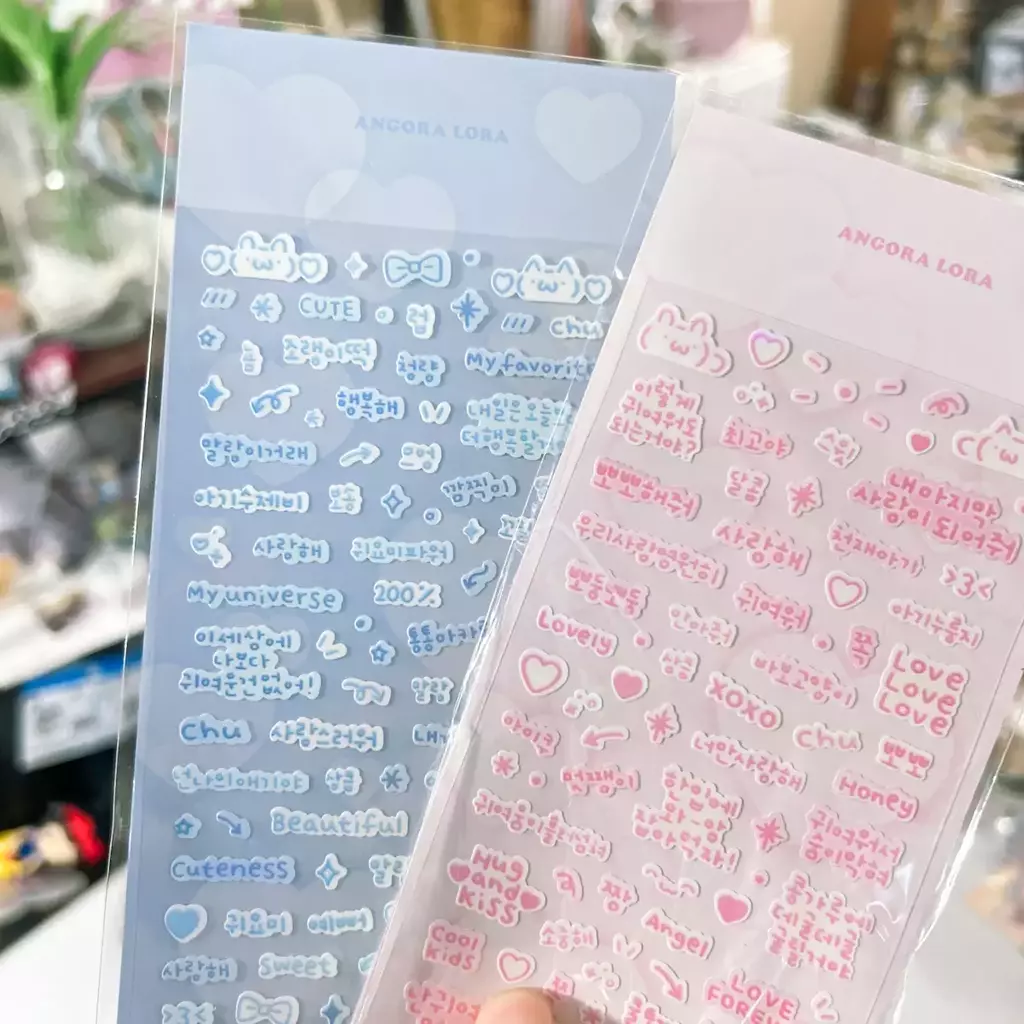 ANGORA LORA
CUTE
럽
chu
조랭이떡
청량
My favorite
행복해
내일은 오늘보다
더 행복할
말랑이거래
아기수제비
깜찍이
사랑해
귀요미파워
My universe
200%
이세상에
나보다
귀여운건 없어!
말랑
chu
사랑스러워
넌나의애기야
상큼
Beautiful
Cuteness
귀요미
예뻐
사랑해
Sweet
>3<
ANGORA LORA
이렇게
귀여워도
되는거야?
최고야
뽀뽀해줘
달콤
내 마지막
사랑이 되어줘
우리사랑영원히
사랑해
천재아기
>3<
뽀둥뽀둑
귀여워
아기누룽지
Lovely
안아줘
쪽
상큼
바보고양이
Love
Love
Love
XOXO
아이쿠
chu
뽀뽀
너만사랑해
멋쨍이
Honey
한입에
와앙
잡아먹자!
귀여워서
Hug
and
Kiss
짱
콩가루에
데굴데굴
굴릴거야
Angel
Cool
Kids
소중해
LOVE
FOREVER